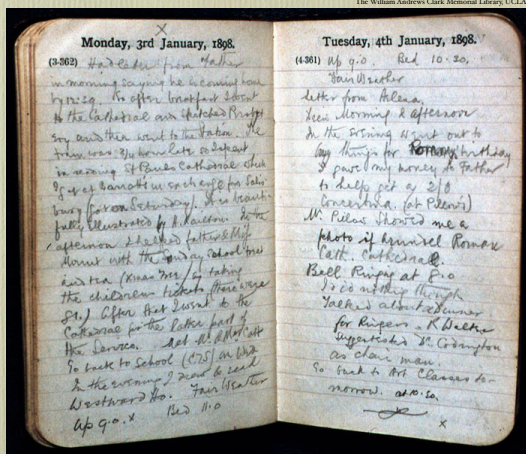 The William Andrews Clark Memorial Library, UCLA
X
Monday, 3rd January, 1898.
(3-362) Had letter from Father
in morning saying he is coming home
by 12.29. So after breakfast I went
to the Cathedral and sketched
and then went to the station. The
train was 3/4 hour late so I spent
in reading St Pauls Cathedral which
I got at Barratts in exchange for Salis
bury (got on Saturday). It is beauti
fully illustrated by H. Railton. In the
afternoon I helped father & Mr
with the Sunday School treat
and tea (Xmas tree) by taking
the childrens tickets (there were
81.) After that I went to the
Cathedral for the latter part of
the Service.
Go back to School (C.T.S) on
In the evening I read
Westward Ho. Fair Weather
up 9.0. x Bed 11.0
Tuesday, 4th January, 1898.
(4-361) Up 9.0. Bed 10.20,
Fair Weather
Letter from
Morning & afternoon
In the evening went out to
buy things for birthday
I gave my money to Father
to help get a 2/0
Concertina (at Pilows)
Mr. Pilow showed me a
photo if Arundel Roman
Cath. Cathedral.
Bell Ringing at 8.0
I do nothing though
Talked about a dinner
for Ringers. R Walker
suggested Dr. Codrington
as chair man.
Go back to Art Classes to-
morrow. at 10.30.
x